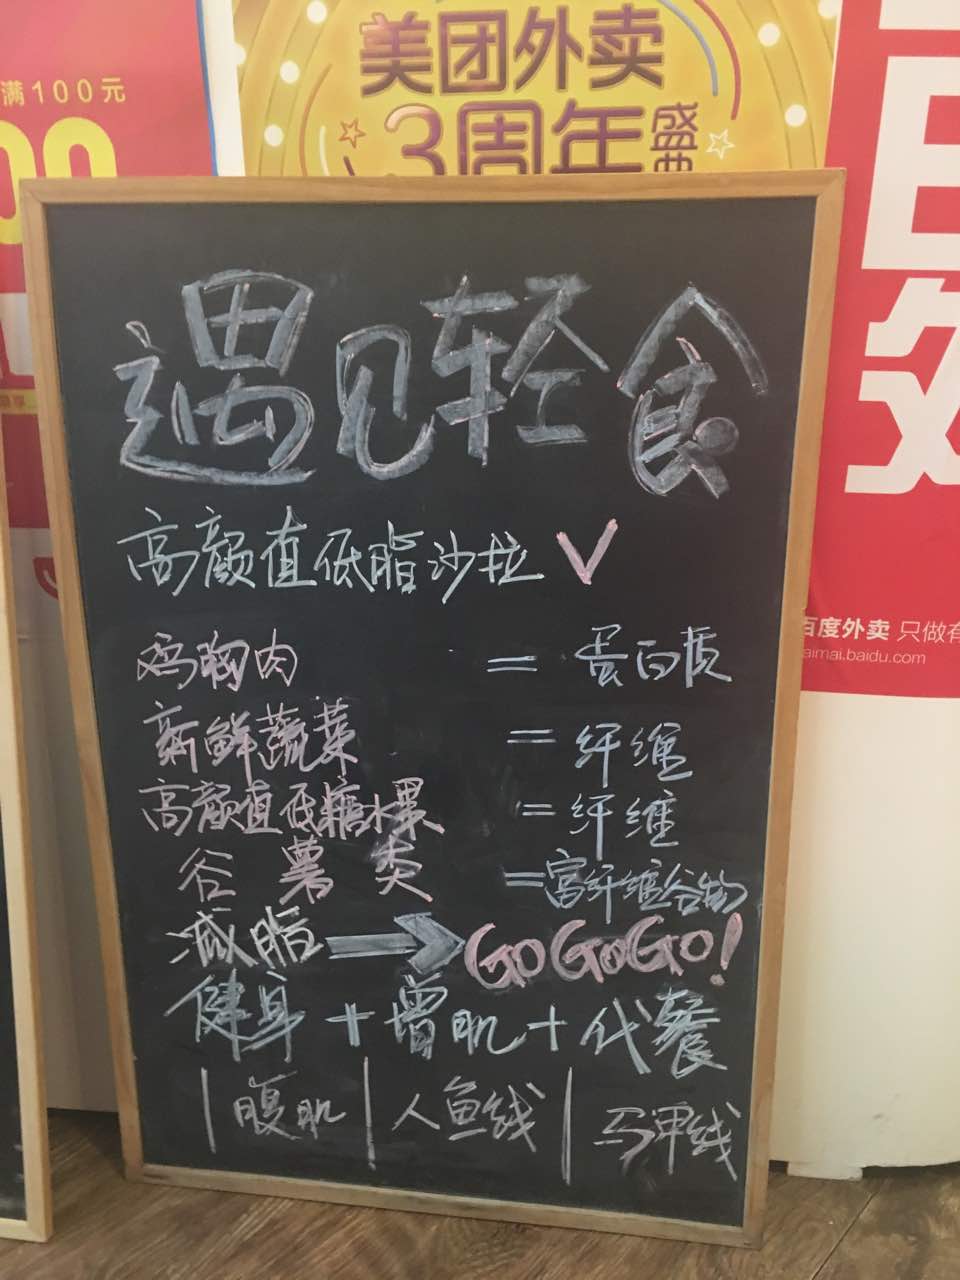 满100元
美团外卖
3周年盛典
遇见轻食
高颜值低脂沙拉 ✓
鸡胸肉 = 蛋白质
新鲜蔬菜 = 纤维
高颜值低糖水果 = 纤维
谷 薯 类 = 富纤维谷物
减脂 → GoGoGo!
健身 + 增肌 + 代餐
| 腹肌 | 人鱼线 | 马甲线
百度外卖 只做有
aimai.baidu.com